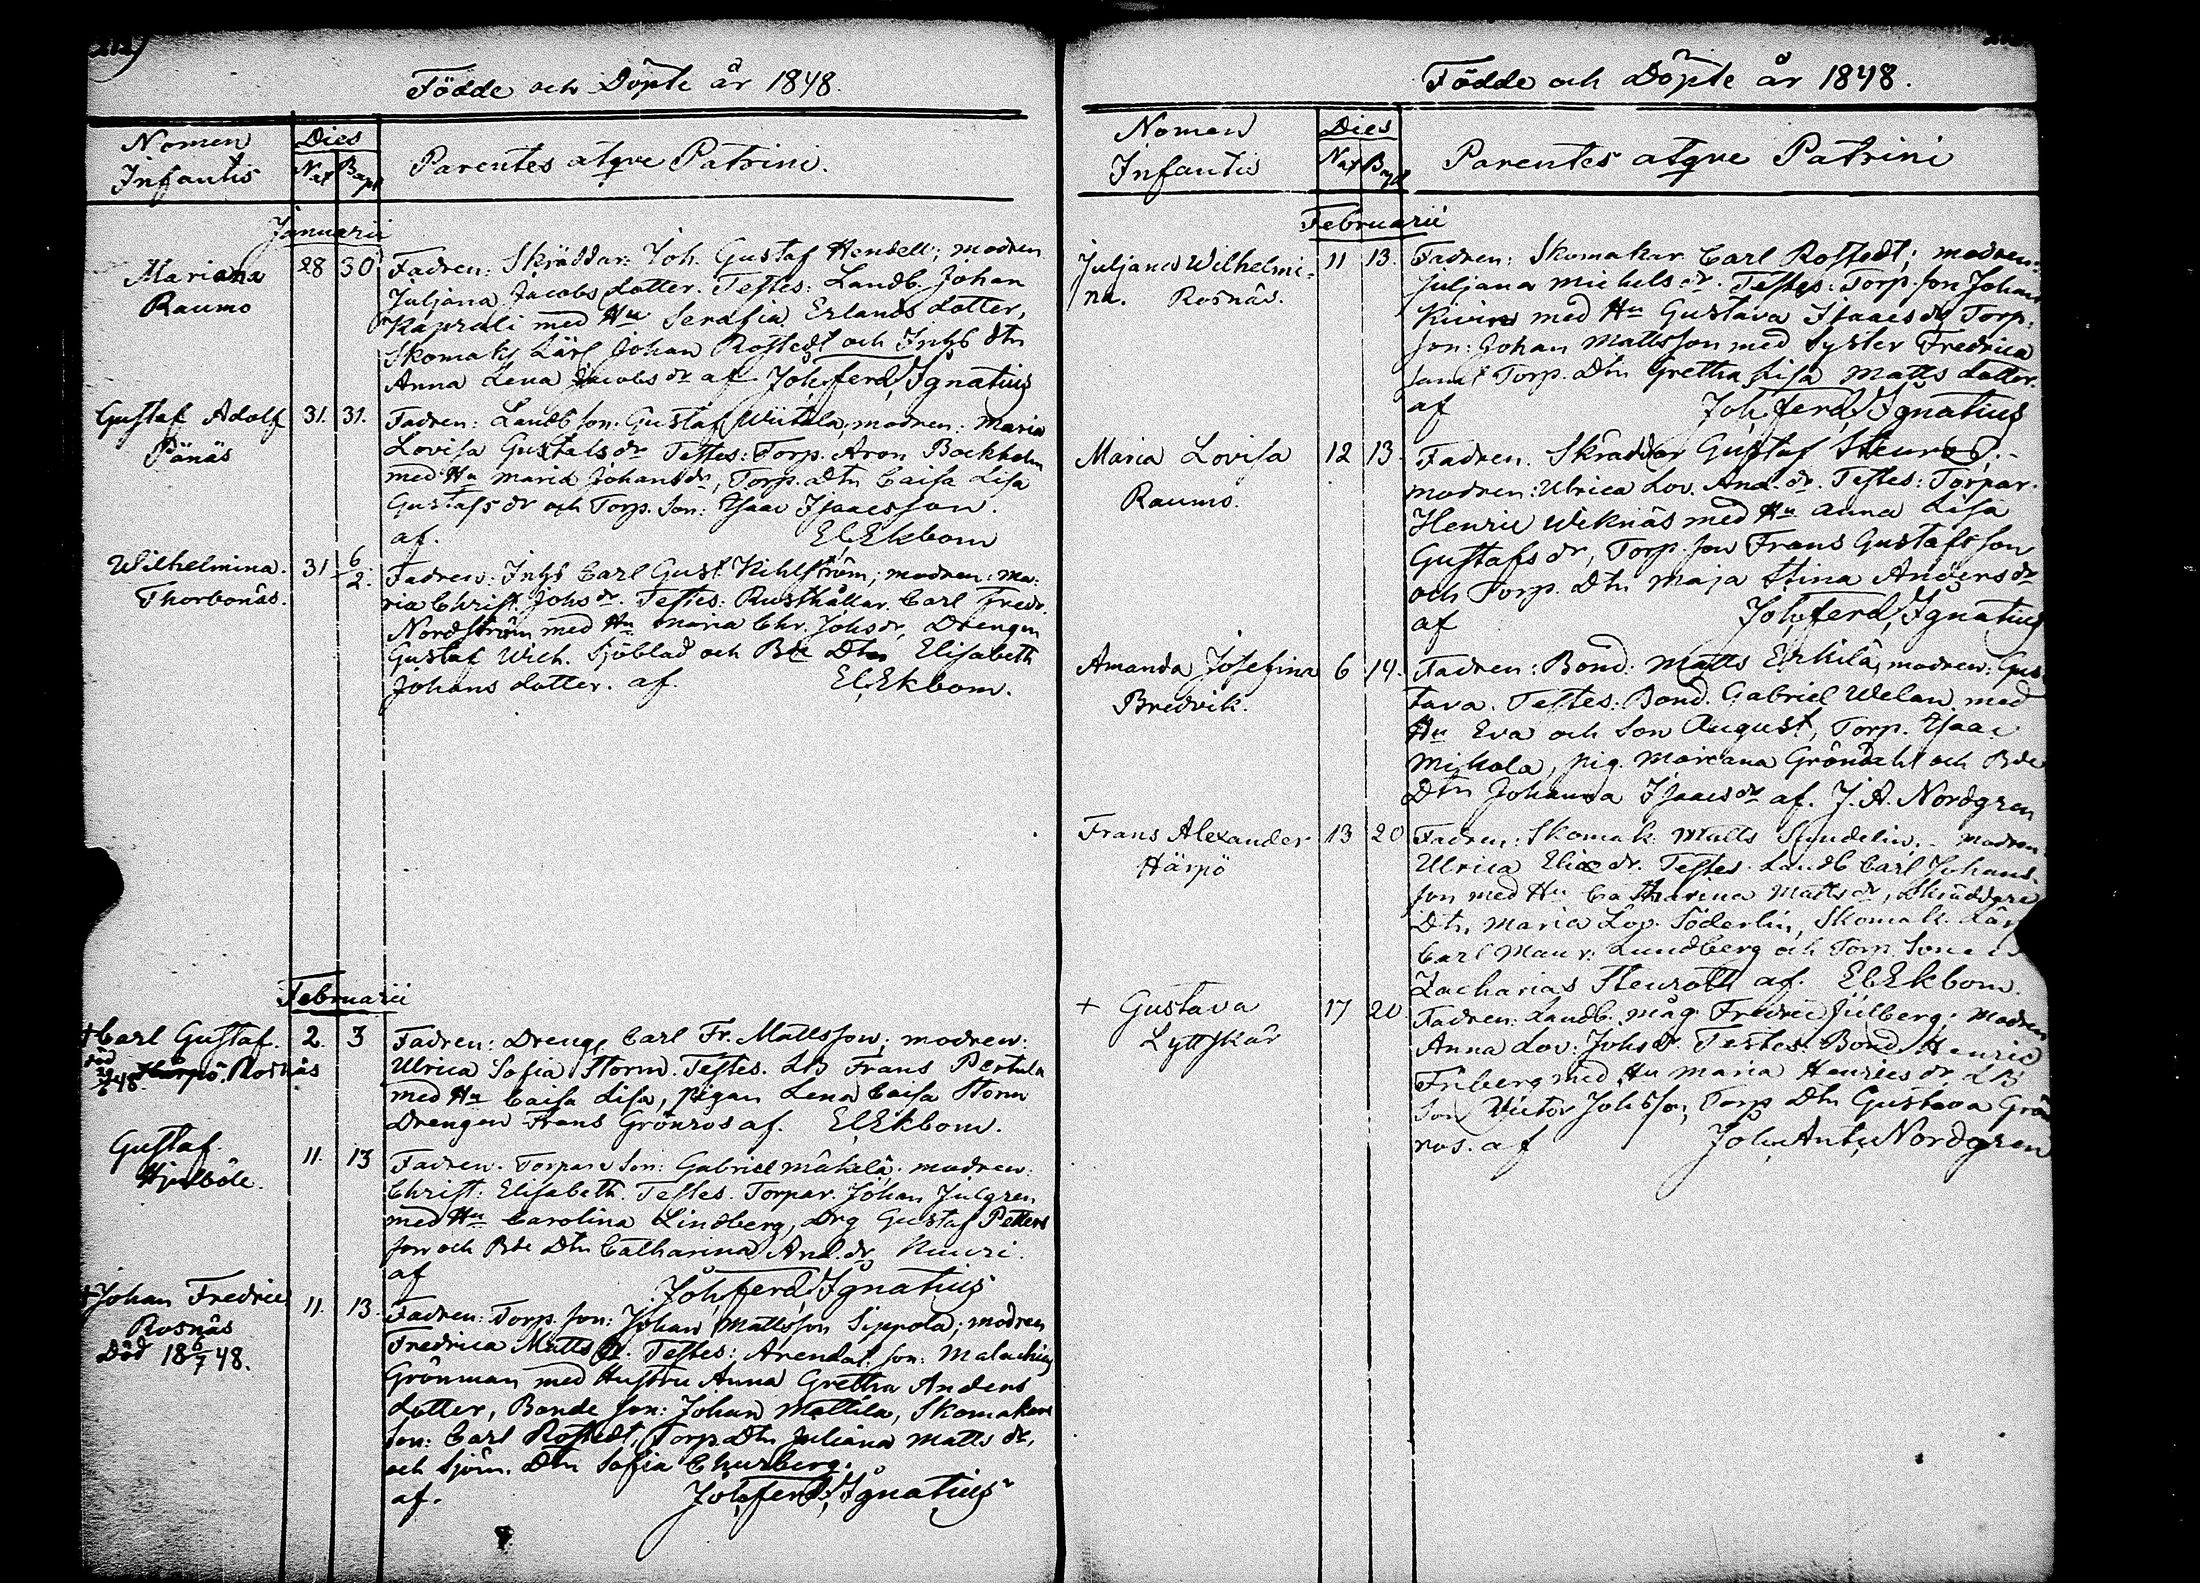 Födde och Döpte år 1848.
Nomen Infantis
Dies
Nat Bapt
Parentes atqve Patrini.
Januarii
Mariana Raumo
28 30
Fadren: Skräddar: Joh. Gustaf Hendell; modren
Juljana Jacobs dotter. Testes: Landb. Johan
Kaprali med Hu Serafia Erlands dotter,
Skomak. Lärl Johan Rostedt och Inhs dtn
Anna Lena Jacobs dr af Joh. Ferd. Ignatius
Gustaf Adolf Pänäs
31. 31.
Fadren: Landb. son: Gustaf Wiitala, modren: Maria
Lovisa Gustafs dr Testes: Torp. Aron Bockholm
med Hu Maria Johans dr, Torp. dtn Caisa Lisa
Gustafs dr och Torp. Son: Isaac Isaacsson.
af. E.C. Ekbom
Wilhelmina. Thorbonäs.
31 6/2.
Fadren: Inhs Carl Gust. Kihlström; modren: Ma-
ria Christ. Johs dr. Testes: Rusthållar. Carl Fredr.
Nordström med Hu Maria Chr. Johs dr, Drengen
Gustaf Wilh. Sjöblad och Bde Dtn Elisabeth
Johans dotter. af. E.C. Ekbom.
Februarii
+ Carl Gustaf. Rosnäs
2. 3
Fadren: Dreng. Carl Fr. Mattsson; modren:
Ulrica Sofia Storm. Testes. LB Frans Pertula
med Hu Caisa Lisa, pigan Lena Caisa Storm
Drengen Frans Grönros af. E.C. Ekbom.
Gustaf. Hjulböle.
11. 13
Fadren. Torpare Son: Gabriel Mäkelä: modren:
Christ: Elisabeth. Testes. Torpar. Johan Julgren
med Hu Carolina Lindberg, Drg Gustaf Petters
son och Bde Dtn Catharina And. dr Knuuri.
af Joh. Ferd. Ignatius
+ Johan Fredric Rosnäs
Död 18 6/7 48.
11. 13.
Fadren: Torp. son: Johan Mattsson Sippola; modren
Fredrica Matts dr. Testes: Arendat. son: Malachias
Grönman med Hustru Anna Gretha Anders
dotter, Bonde Son: Johan Mattila, Skomakare
Son: Carl Rostedt, Torp. Dtn Juliana Matts dr,
och Sjöm. Dtn Sofia Churberg.
af. Joh. Ferd. Ignatius
Födde och Döpte år 1848.
Nomen Infantis
Dies
Nat Bapt
Parentes atqve Patrini
Februarii
Juljana Wilhelmi-
na. Rosnäs.
11 13.
Fadren: Skomakar. Carl Rostedt; modren:
Juljana Michels dr. Testes: Torp. son Johan
med Hu Gustava Isaacs dr Torp.
son: Johan Mattsson med Syster Fredrica
samt Torp. Dtn Gretha Lisa Matts dotter.
af Joh. Ferd. Ignatius
Maria Lovisa Raumo.
12 13.
Fadren. Skräddar Gustaf Steuros.-
modren: Ulrica Lov. And. dr. Testes: Torpar.
Henric Weknäs med Hu Anna Lisa
Gustafs dr, Torp. son Frans Gustafsson
och Torp. Dtn Maja Stina Anders dr
af Joh. Ferd. Ignatius
Amanda Josefina Bredvik.
6 19.
Fadren: Bond: Matts Erkilä, modren: Gus-
tava. Testes: Bond. Gabriel Welan med
Hu Eva och Son August, Torp. Isaac
Mikola, pig. Mariana Gröndahl och Bde
Dtn Johanna Isaacs dr af. J. A. Nordgren
Frans Alexander Härpö
13 20
Fadren: Skomak. Matts Sundelin.- modren
Ulrica Eliæ dr. Testes. Landb Carl Johans-
son med Hu Catharina Matts dr, Skräddare
Dtn, Maria Lov. Söderlin, Skomak. Lärl
Carl Maur: Lundberg och Torp. Sonen
Zacharias Steuroth af. E.C. Ekbom.
+ Gustava Lyttskär
17 20
Fadren: Landb. måg Fredric Julberg; modren
Anna Lov: Johs dr. Testes: Bond. Henric
Friberg med Hu Maria Henrics dr, LB
Son Victor Johsson, Torp Dtn Gustava Grön
ros. af Joh. Ant. Nordgren